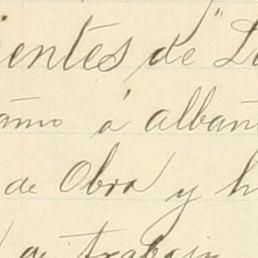 ientes de "La
amo á albañ
de Obra y h
de trabajo